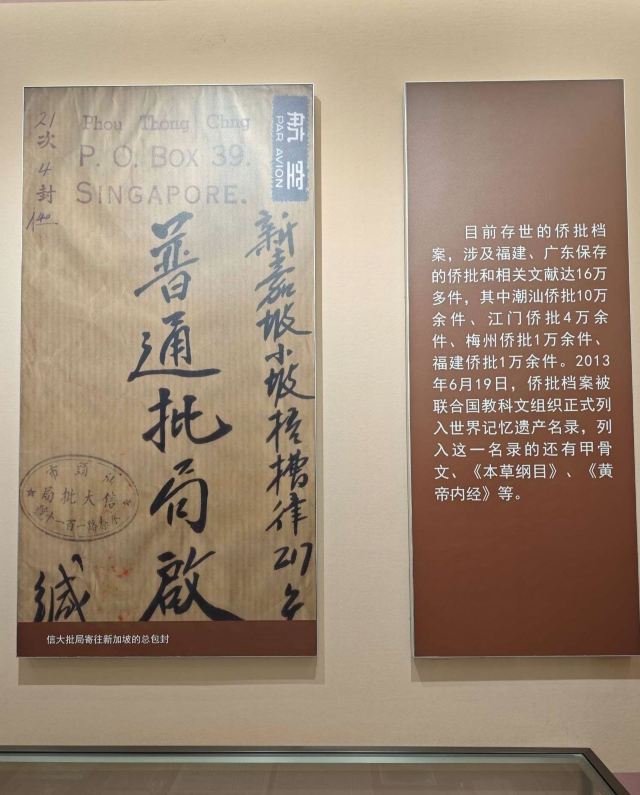 21次4封
Phou Thong Chng
P. O. BOX 39.
SINGAPORE.
航空
PAR AVION
新嘉坡小坡梧槽律217号
普通批局啟
信大批局
緘
信大批局寄往新加坡的总包封
目前存世的侨批档
案，涉及福建、广东保存
的侨批和相关文献达16万
多件，其中潮汕侨批10万
余件、江门侨批4万余
件、梅州侨批1万余件、
福建侨批1万余件。2013
年6月19日，侨批档案被
联合国教科文组织正式列
入世界记忆遗产名录，列
入这一名录的还有甲骨
文、《本草纲目》、《黄
帝内经》等。